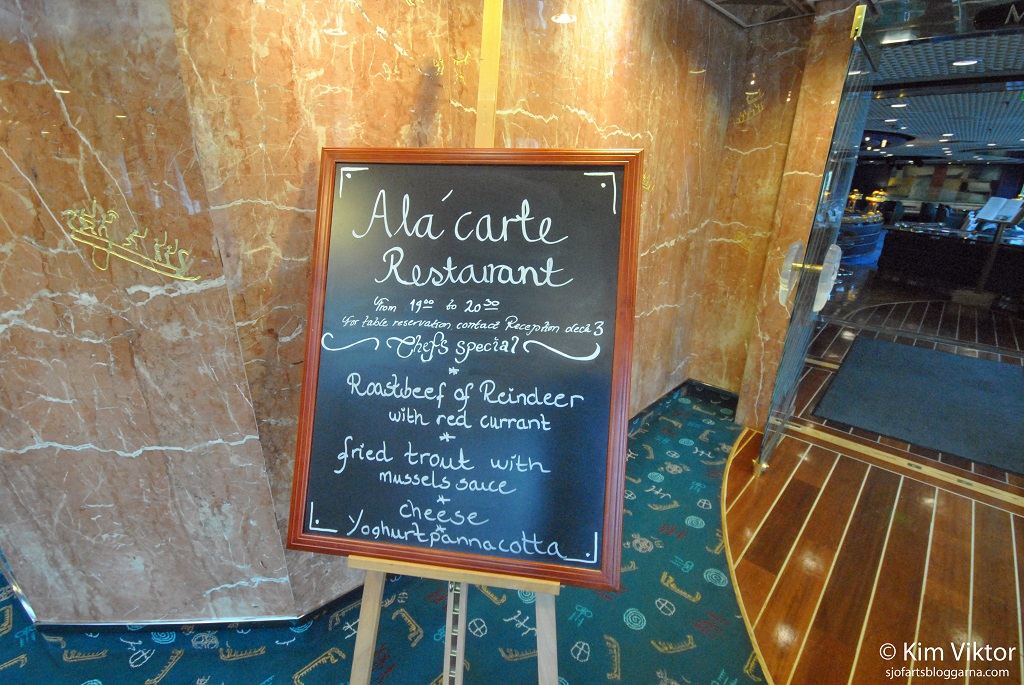 Alá carte
Restaurant
From 19⁰⁰ to 20³⁰
For table reservation contact Reception deck 3
Chefs special
*
Roastbeef of Reindeer
with red currant
*
fried trout with
mussels sauce
*
cheese
*
Yoghurtpannacotta
© Kim Viktor
sjofartsbloggarna.com